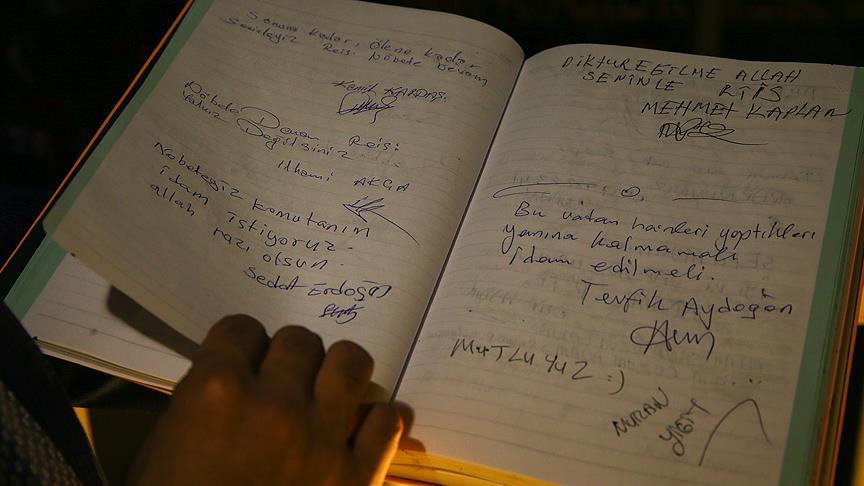 Sonuna kadar, ölene kadar
Seninleyiz Reis Nöbete Devam
Kemik KARDAŞ
Nöbete Devam Reis:
Yalnız Değilsiniz
ilhami AKÇA
Nobeteyiz komutanım
idam istiyoruz.
allah razı olsun.
Sedat Erdoğan
DİKTUREĞİLME ALLAH
SENİNLE REİS
MEHMET KAPLAN
Bu vatan hainleri yaptıkları
yanına kalmamalı
idam edilmeli.
Tevfik Aydoğan
MUTLUYUZ :)
NURAN
YİĞİT